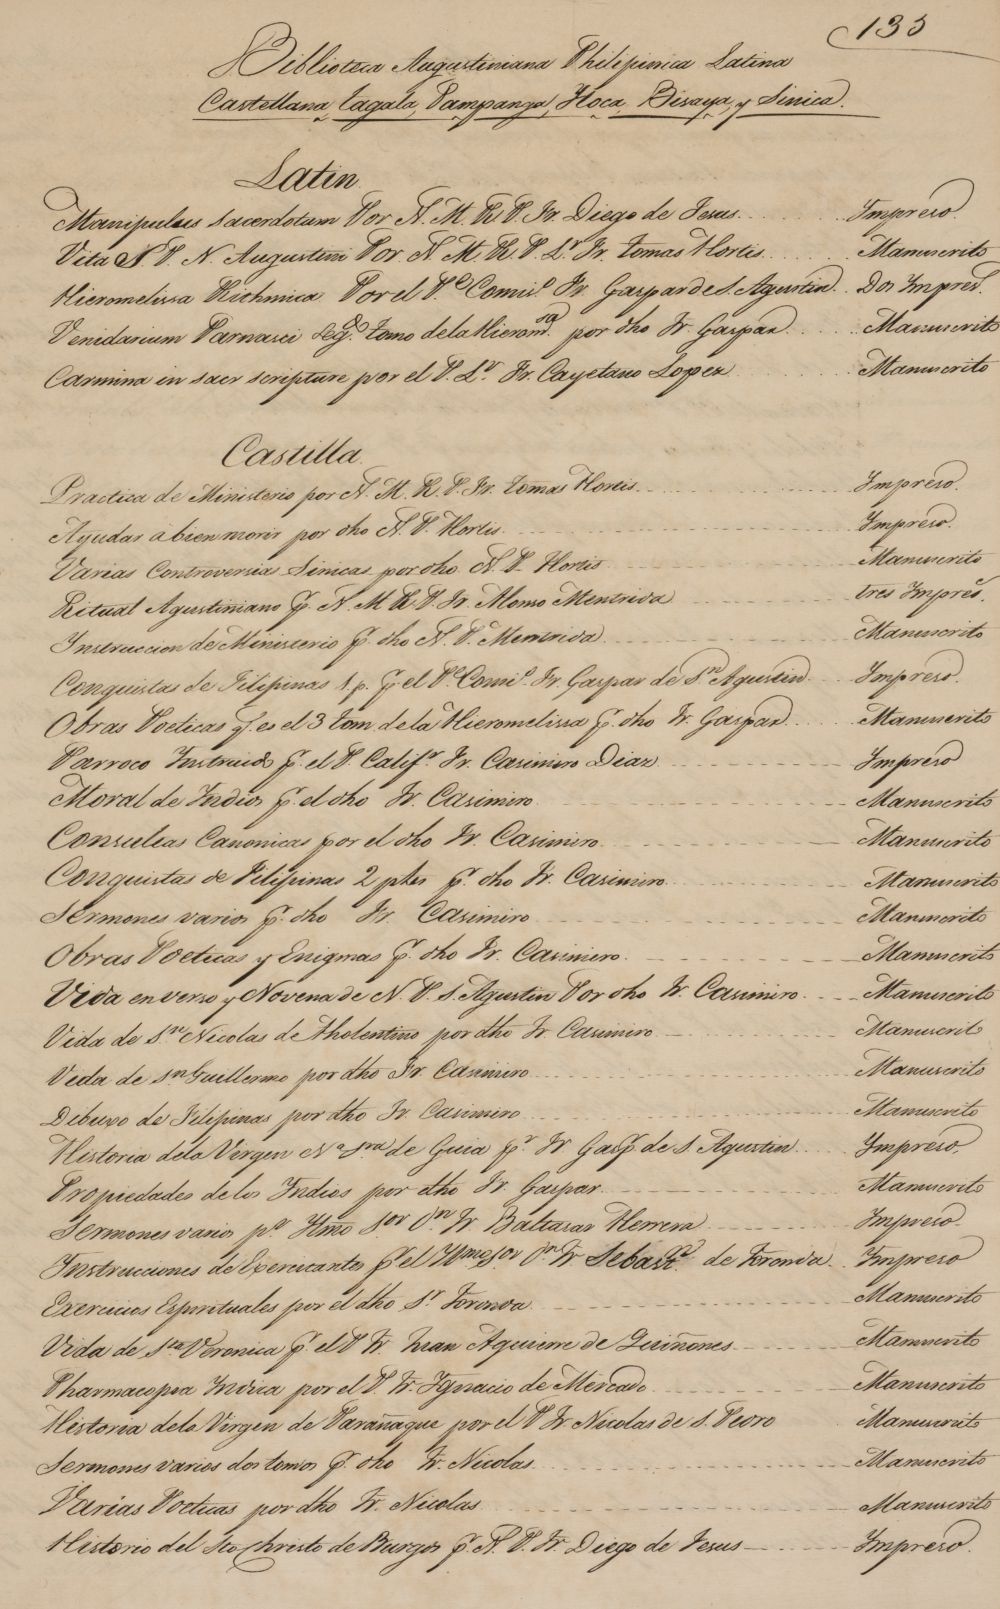 133
Biblioteca Augustiniana Philipinica Latina
Castellana, tagala, Pampanga, Yloca, Bisaya, y Sinica.
Latin.
Manipulus sacerdotum Por N. M. R. P. Fr. Diego de Jesus. Impreso.
Vita S. P. N. Augustini Por N. M. R. P. Lr. Fr. tomas Hortis. Manuscrito
Hieromelissa Richmica Por el Pe. Comisº. Fr. Gaspar de S. Agustin. Dos Impresˢ.
Venidarium Parnasci segº. tomo de la Hierom.sa por dho Fr. Gaspar. Manuscrito
Carmina in sacr scripture por el P. Lr. Fr. Cayetano Lopez Manuscrito
Castilla.
Practica de Ministerio por N. M. R. P. Fr. tomas Hortis. Impreso.
Ayudas a bien morir por dho N. P. Hortis. Impreso.
Varias Controversias Sinicas por dho. N. P. Hortis Manuscrito
Ritual Agustiniano p. N. M. R. P. Fr. Alonso Mentrida tres Impresˢ.
Instruccion de Ministerio p. dho N. P. Mentrida Manuscrito
Conquistas de Filipinas 1. p. p. el Pe. Comisº. Fr. Gaspar de Sn. Agustin Impreso.
Obras Poeticas q. es el 3 tom. de la Hieromelissa p. dho Fr. Gaspar Manuscrito
Parroco Instruido p. el P. Califr. Fr. Casimiro Diaz Impreso
Moral de Indios p. el dho Fr. Casimiro Manuscrito
Consultas Canonicas por el dho Fr. Casimiro Manuscrito
Conquistas de Filipinas 2 ptes p. dho Fr. Casimiro Manuscrito
Sermones varios p. dho Fr. Casimiro Manuscrito
Obras Poeticas y Enigmas p. dho Fr. Casimiro. Manuscrito
Vida en verso y Novena de N. P. S. Agustin Por dho Fr. Casimiro Manuscrito
Vida de Sn. Nicolas de tholentino por dho Fr. Casimiro Manuscrito
Vida de Sn Guillermo por dho Fr. Casimiro Manuscrito
Dibuxo de Filipinas por dho Fr. Casimiro Manuscrito
Historia dela Vergen Na Sra de Guia pr. Fr Gasp de S. Agustin Impreso.
Propiedades de los Indios por dho Fr Gaspar Manuscrito
Sermones varios pr Yllmo Sor Dn Fr Baltasar Herrera Impreso
Instrucciones de Exercitantes p el Yllmo Sor Dn Fr Sebastn. de Foronda. Impreso
Exercicios Espirituales por el dho Sr Foronda. Manuscrito
Vida de Sta Veronica p. el P Fr. Juan Aguirre de Quiñones Manuscrito
Pharmacopea Indica por el P. Fr. Ygnacio de Mercado Manuscrito
Historia dela Virgen de Parañaque por el P Fr Nicolas de S. Pedro Manuscrito
Sermones varios dos tomos p. dho Fr. Nicolas Manuscrito
Varias Poeticas por dho Fr. Nicolas Manuscrito
Historia del Sto Christo de Burgos p. N. P. Fr. Diego de Jesus Impreso.